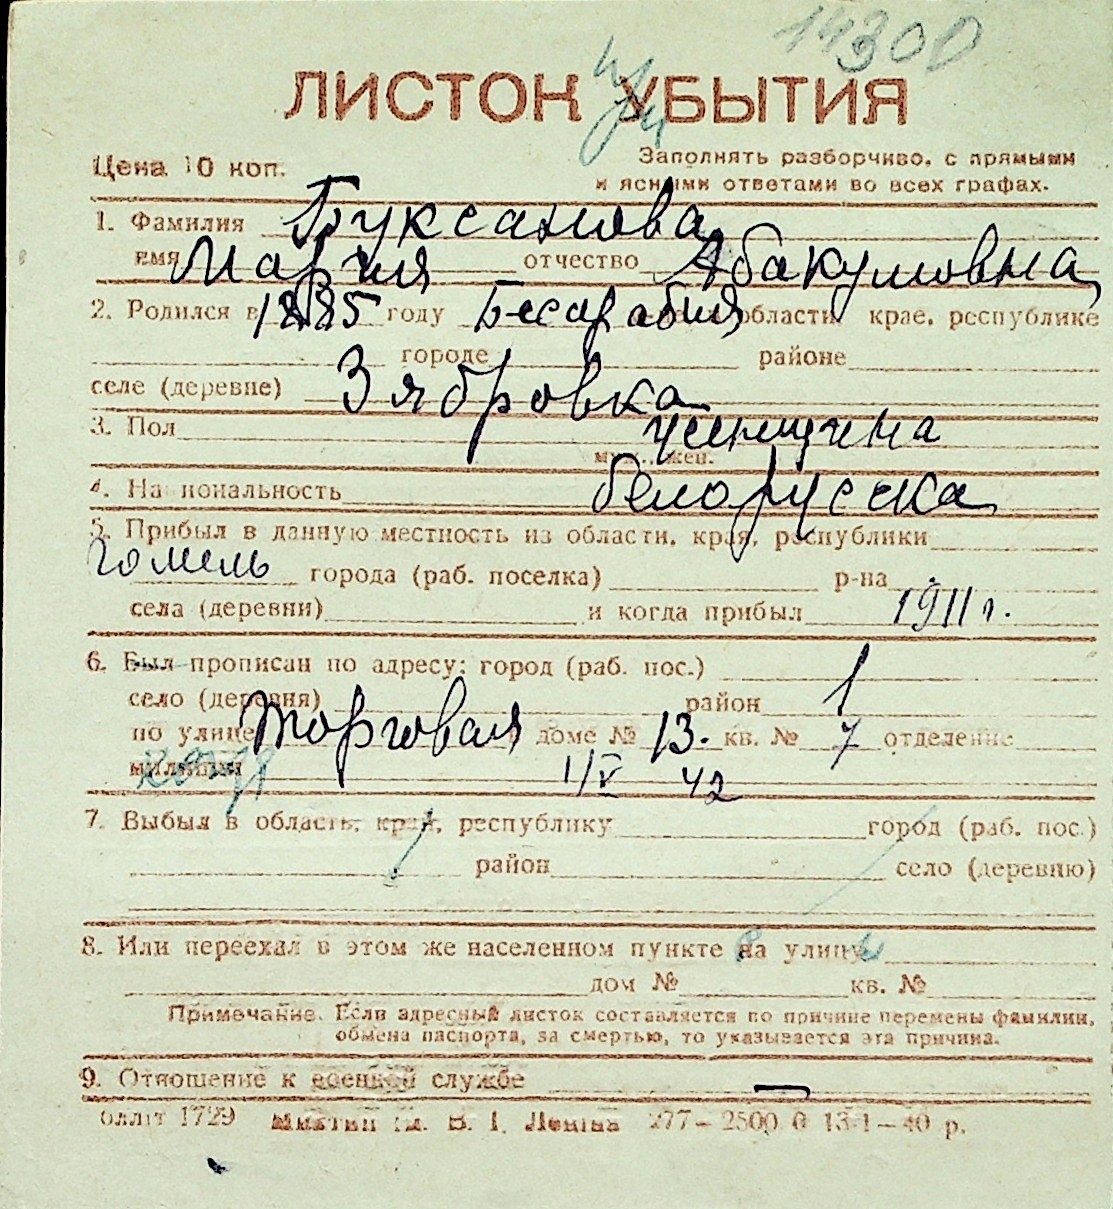 14300
ЛИСТОК УБЫТИЯ
Цена 10 коп.
Заполнять разборчиво, с прямыми
и ясными ответами во всех графах.
1. Фамилия Буксанова
имя Мария отчество Абакумовна
2. Родился в 1885 году Бесарабия области, крае, республике
городе районе
селе (деревне) Зябровка
3. Пол женщина
муж., жен.
4. На иональность белорусска
5. Прибыл в данную местность из области, края, республики
Гомель города (раб. поселка) р-на
села (деревни) и когда прибыл 1911 г.
6. Был прописан по адресу: город (раб. пос.)
село (деревня) район 1
по улице Торговая доме № 13. кв. № 7 отделение
милиции 1/V 42
7. Выбыл в область, край, республику город (раб. пос.)
район село (деревню)
8. Или переехал в этом же населенном пункте на улицу
дом № кв. №
Примечание. Если адресный листок составляется по причине перемены фамилии,
обмена паспорта, за смертью, то указывается эта причина.
9. Отношение к военной службе —
1729 В. І. Леніна 277—2500 0 13-1—40 р.